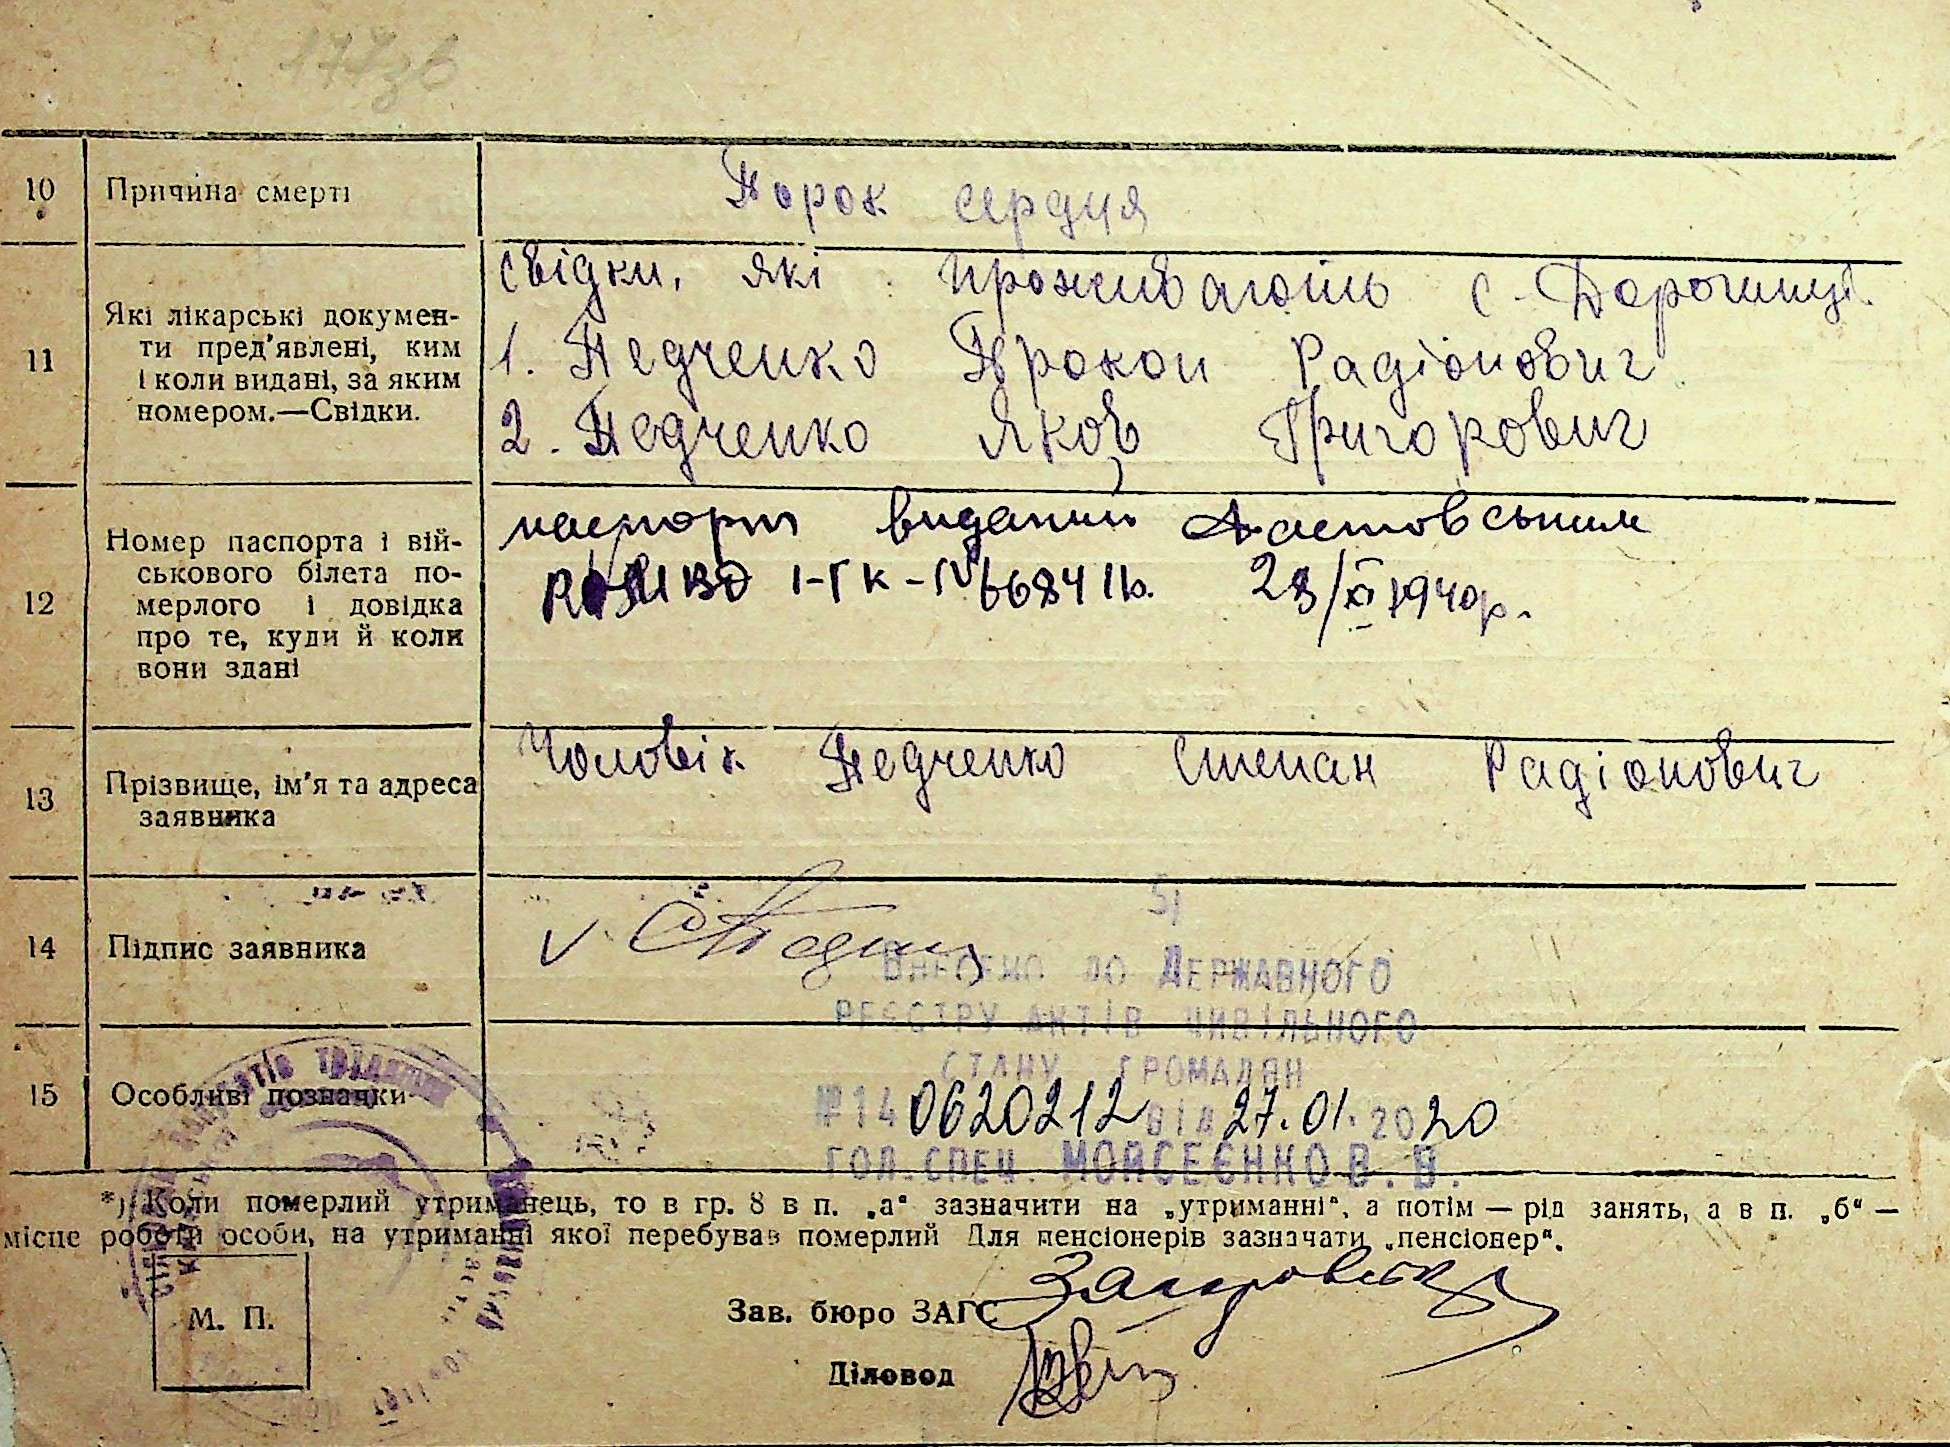 177зв
10 Причина смерті Порок сердця
11 Які лікарські докумен-
ти пред'явлені, ким
і коли видані, за яким
номером.—Свідки.
свідки, які проживають с. Дорогинці.
1. Педченко Прокоп Радіонович
2. Педченко Яков Григорович
12 Номер паспорта і вій-
ськового білета по-
мерлого і довідка
про те, куди й коли
вони здані
паспорт виданий Фастовським
І-ГК-IV 668411 28/XI 1940р.
13 Прізвище, ім'я та адреса
заявника
Чоловік Педченко Степан Радіонович
14 Підпис заявника
V СПедч
51
ВНЕСЕНО ДО ДЕРЖАВНОГО
РЕЄСТРУ АКТІВ ЦИВІЛЬНОГО
СТАНУ ГРОМАДЯН
15 Особливі позначки
№14 0620212 від 27.01.2020
ГОЛ.СПЕЦ. МОЙСЕЄНКО В.В.
*) Коли померлий утриманець, то в гр. 8 в п. „а“ зазначити на „утриманні“, а потім — рід занять, а в п. „б“ —
місце роботи особи, на утриманні якої перебував померлий Для пенсіонерів зазначати „пенсіонер“.
М. П.
Зав. бюро ЗАГС
Діловод